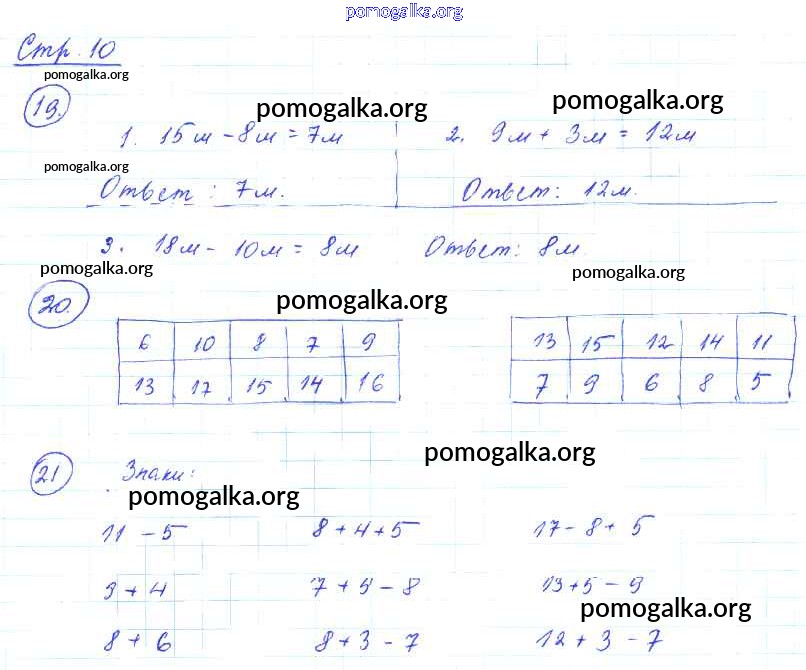 pomogalka.org
Стр. 10
pomogalka.org
19.
pomogalka.org pomogalka.org
1. 15м - 8м = 7м 2. 9м + 3м = 12м
pomogalka.org
Ответ: 7м. Ответ: 12м.
3. 18м - 10м = 8м Ответ: 8м
pomogalka.org pomogalka.org
20. pomogalka.org
6 10 8 7 9 13 15 12 14 11
13 17 15 14 16 7 9 6 8 5
pomogalka.org
21 Знаки:
pomogalka.org
11 - 5 8 + 4 + 5 17 - 8 + 5
9 + 4 7 + 5 - 8 13 + 5 - 9
pomogalka.org
8 + 6 8 + 3 - 7 12 + 3 - 7